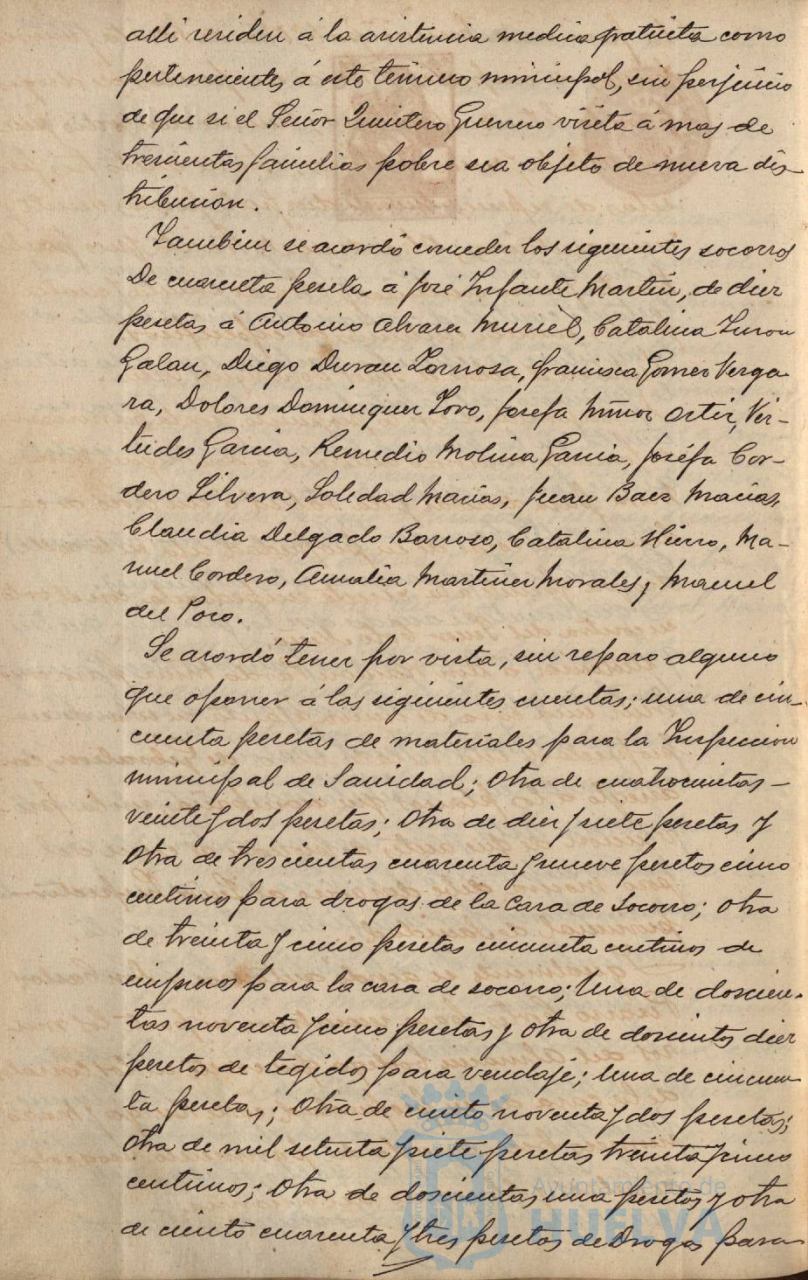 alli residen á la asistencia medica gratuita como
pertenecientes á este término municipal, sin perjuicio
de que si el Señor Quintero Guerrero visita á mas de
trescientas familias pobre sea objeto de nueva dis-
tribucion.
Tambien se acordó conceder los siguientes socorros
De cuarenta peseta á José Infante Martin, de diez
pesetas á Antonio Alvarez Muriel, Catalina
Galan, Diego Duran Zornosa, francisca Gomez Verga
ra, Dolores Dominguez Toro, Josefa Muñoz Ortiz, Vir-
tudes Garcia, Remedio Molina Garcia, Joséfa Cor-
dero Silvera, Soledad Macias, Juan Baez Macias,
Claudia Delgado Barroso, Catalina Hierro, Ma-
nuel Cordero, Amalia Martinez Morales y Manuel
del Pozo.
Se acordó tener por vista, sin reparo alguno
que oponer á las siguientes cuentas; una de cin-
cuenta pesetas de materiales para la Inspeccion
municipal de Sanidad; Otra de cuatrocientas -
veinte y dos pesetas; Otra de diez y siete pesetas y
Otra de trescientas cuarenta y nueve pesetas cinco
centimos para drogas de la Casa de Socorro; Otra
de treinta y cinco pesetas cincuenta centimos de
impresos para la casa de socorro; Una de doscien-
tas noventa y cinco pesetas y otra de doscientos diez
pesetas de tegidos para vendaje; Una de cincuen
ta pesetas; Otra de ciento noventa y dos pesetas;
Otra de mil setenta y siete pesetas treinta y cinco
centimos; Otra de doscientas una pesetas y otra
de ciento cuarenta y tres pesetas de Drogas para
Ayuntamiento de
HUELVA